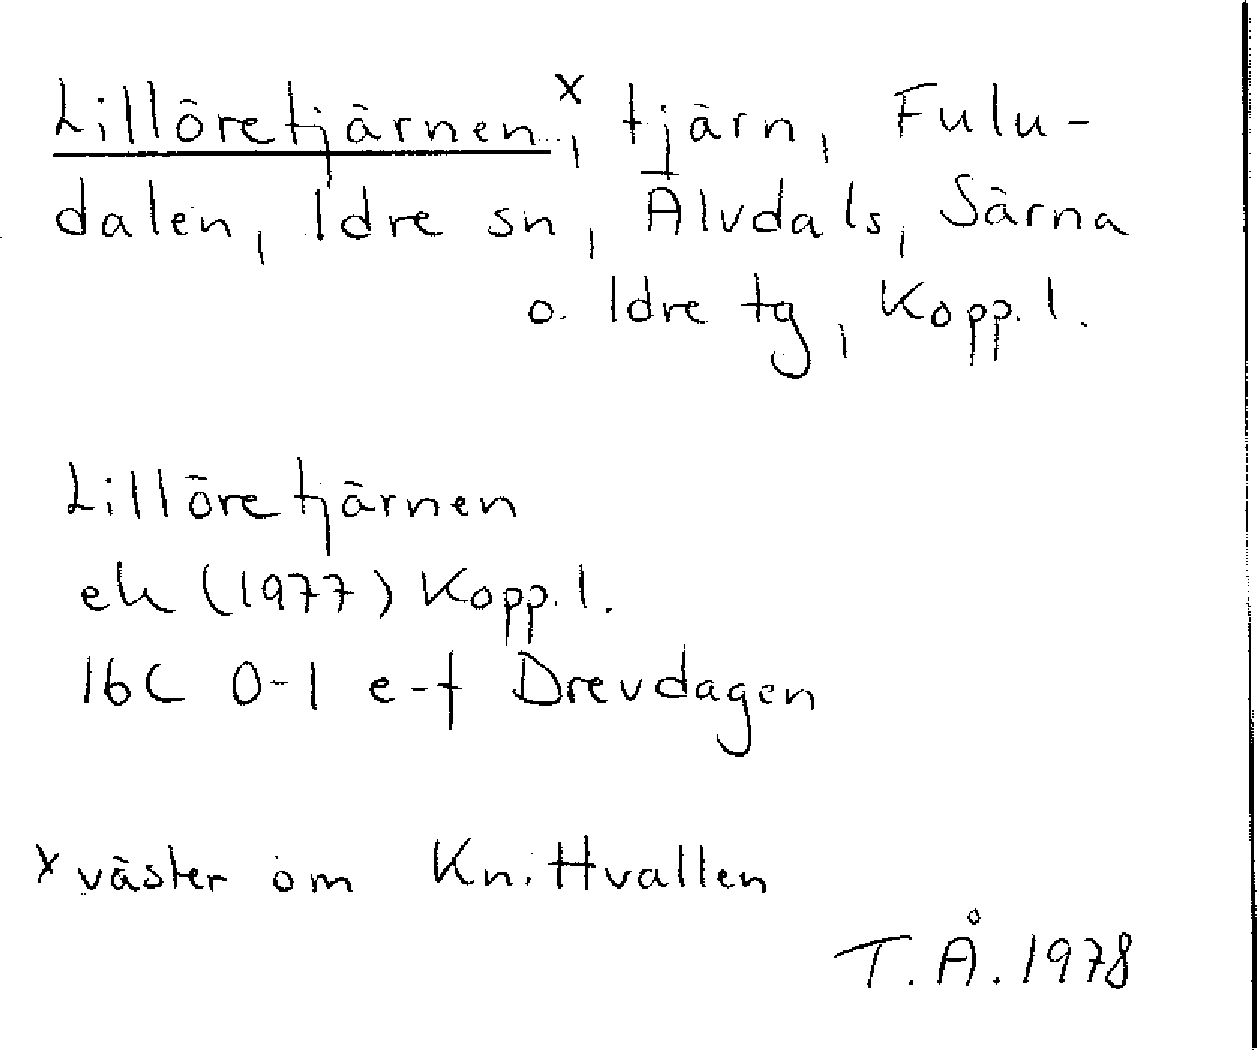 Lillöretjärnen x, tjärn, Fulu-
dalen, Idre sn, Älvdals, Särna
o. Idre tg, Kopp. l.
Lillöretjärnen
ek (1977) Kopp. l.
16C 0-1 e-f Drevdagen
x väster om Knittvallen
T.Å. 1978